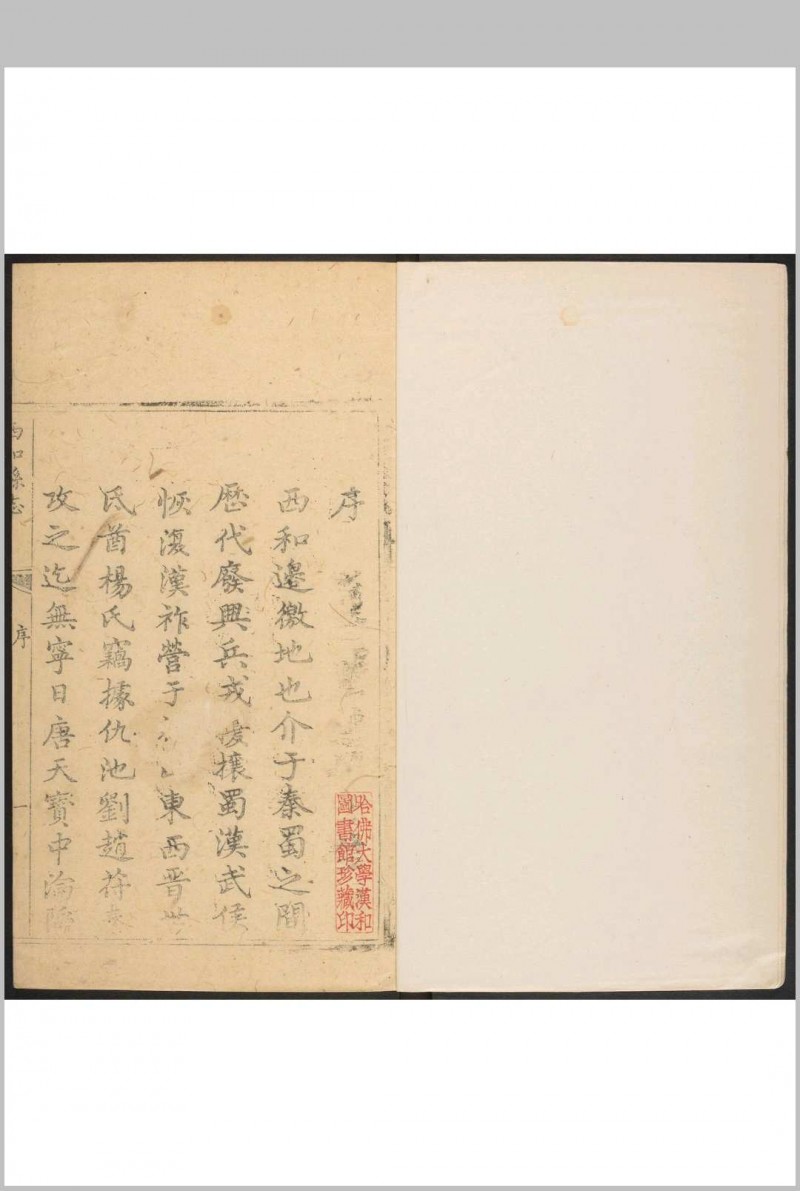 序
西和邊徼地也介于秦蜀之間
歷代廢興兵戎擾攘蜀漢武侯
恢復漢祚營于東西晉世
氐酋楊氏竊據仇池劉趙苻秦
攻之迄無寧日唐天寶中淪陷
哈佛大學漢和
圖書館珍藏印
西和縣志
序
一